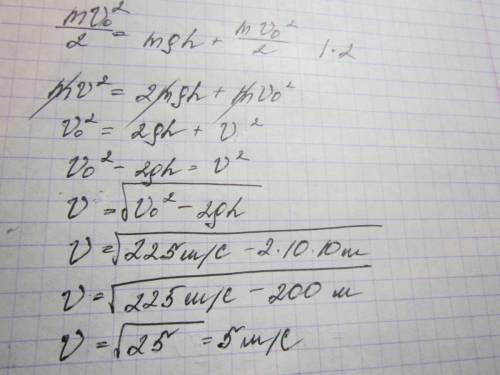 mv₀²/2 = mgh + mv₀²/2 | · 2
mv² = 2mgh + mv₀²
v₀² = 2gh + v²
v₀² - 2gh = v²
v = √(v₀² - 2gh)
v = √(225 м/с - 2·10·10м)
v = √(225 м/с - 200 м)
v = √25 = 5 м/с